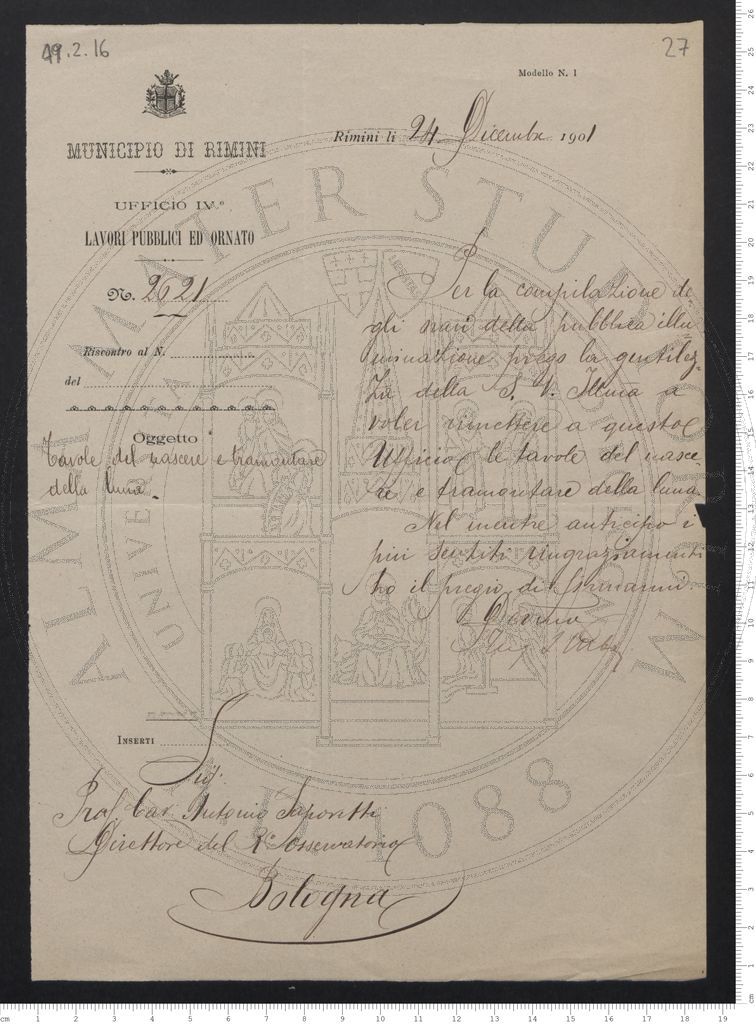 49.2.16
27
Modello N. 1
MUNICIPIO DI RIMINI
Rimini li 24 Dicembre 1901
UFFICIO IV.º
LAVORI PUBBLICI ED ORNATO
N. 2621
Riscontro al N.
del
Oggetto
Tavole del nascere e tramontare
della luna.
Per la compilazione de-
gli orari della pubblica illu-
minazione prego la gentilez-
za della S. V. Illma a
voler rimettere a questo
Ufficio le tavole del nasce-
re e tramontare della luna.
Nel mentre anticipo i
più sentiti ringraziamenti
ho il pregio di firmarmi.
Devmo
Ing.
INSERTI
Sig.
Prof. Cav. Antonio Saporetti
Direttore del R.º Osservatorio
Bologna
ALMA MATER STUDIORUM
A.D. 1088